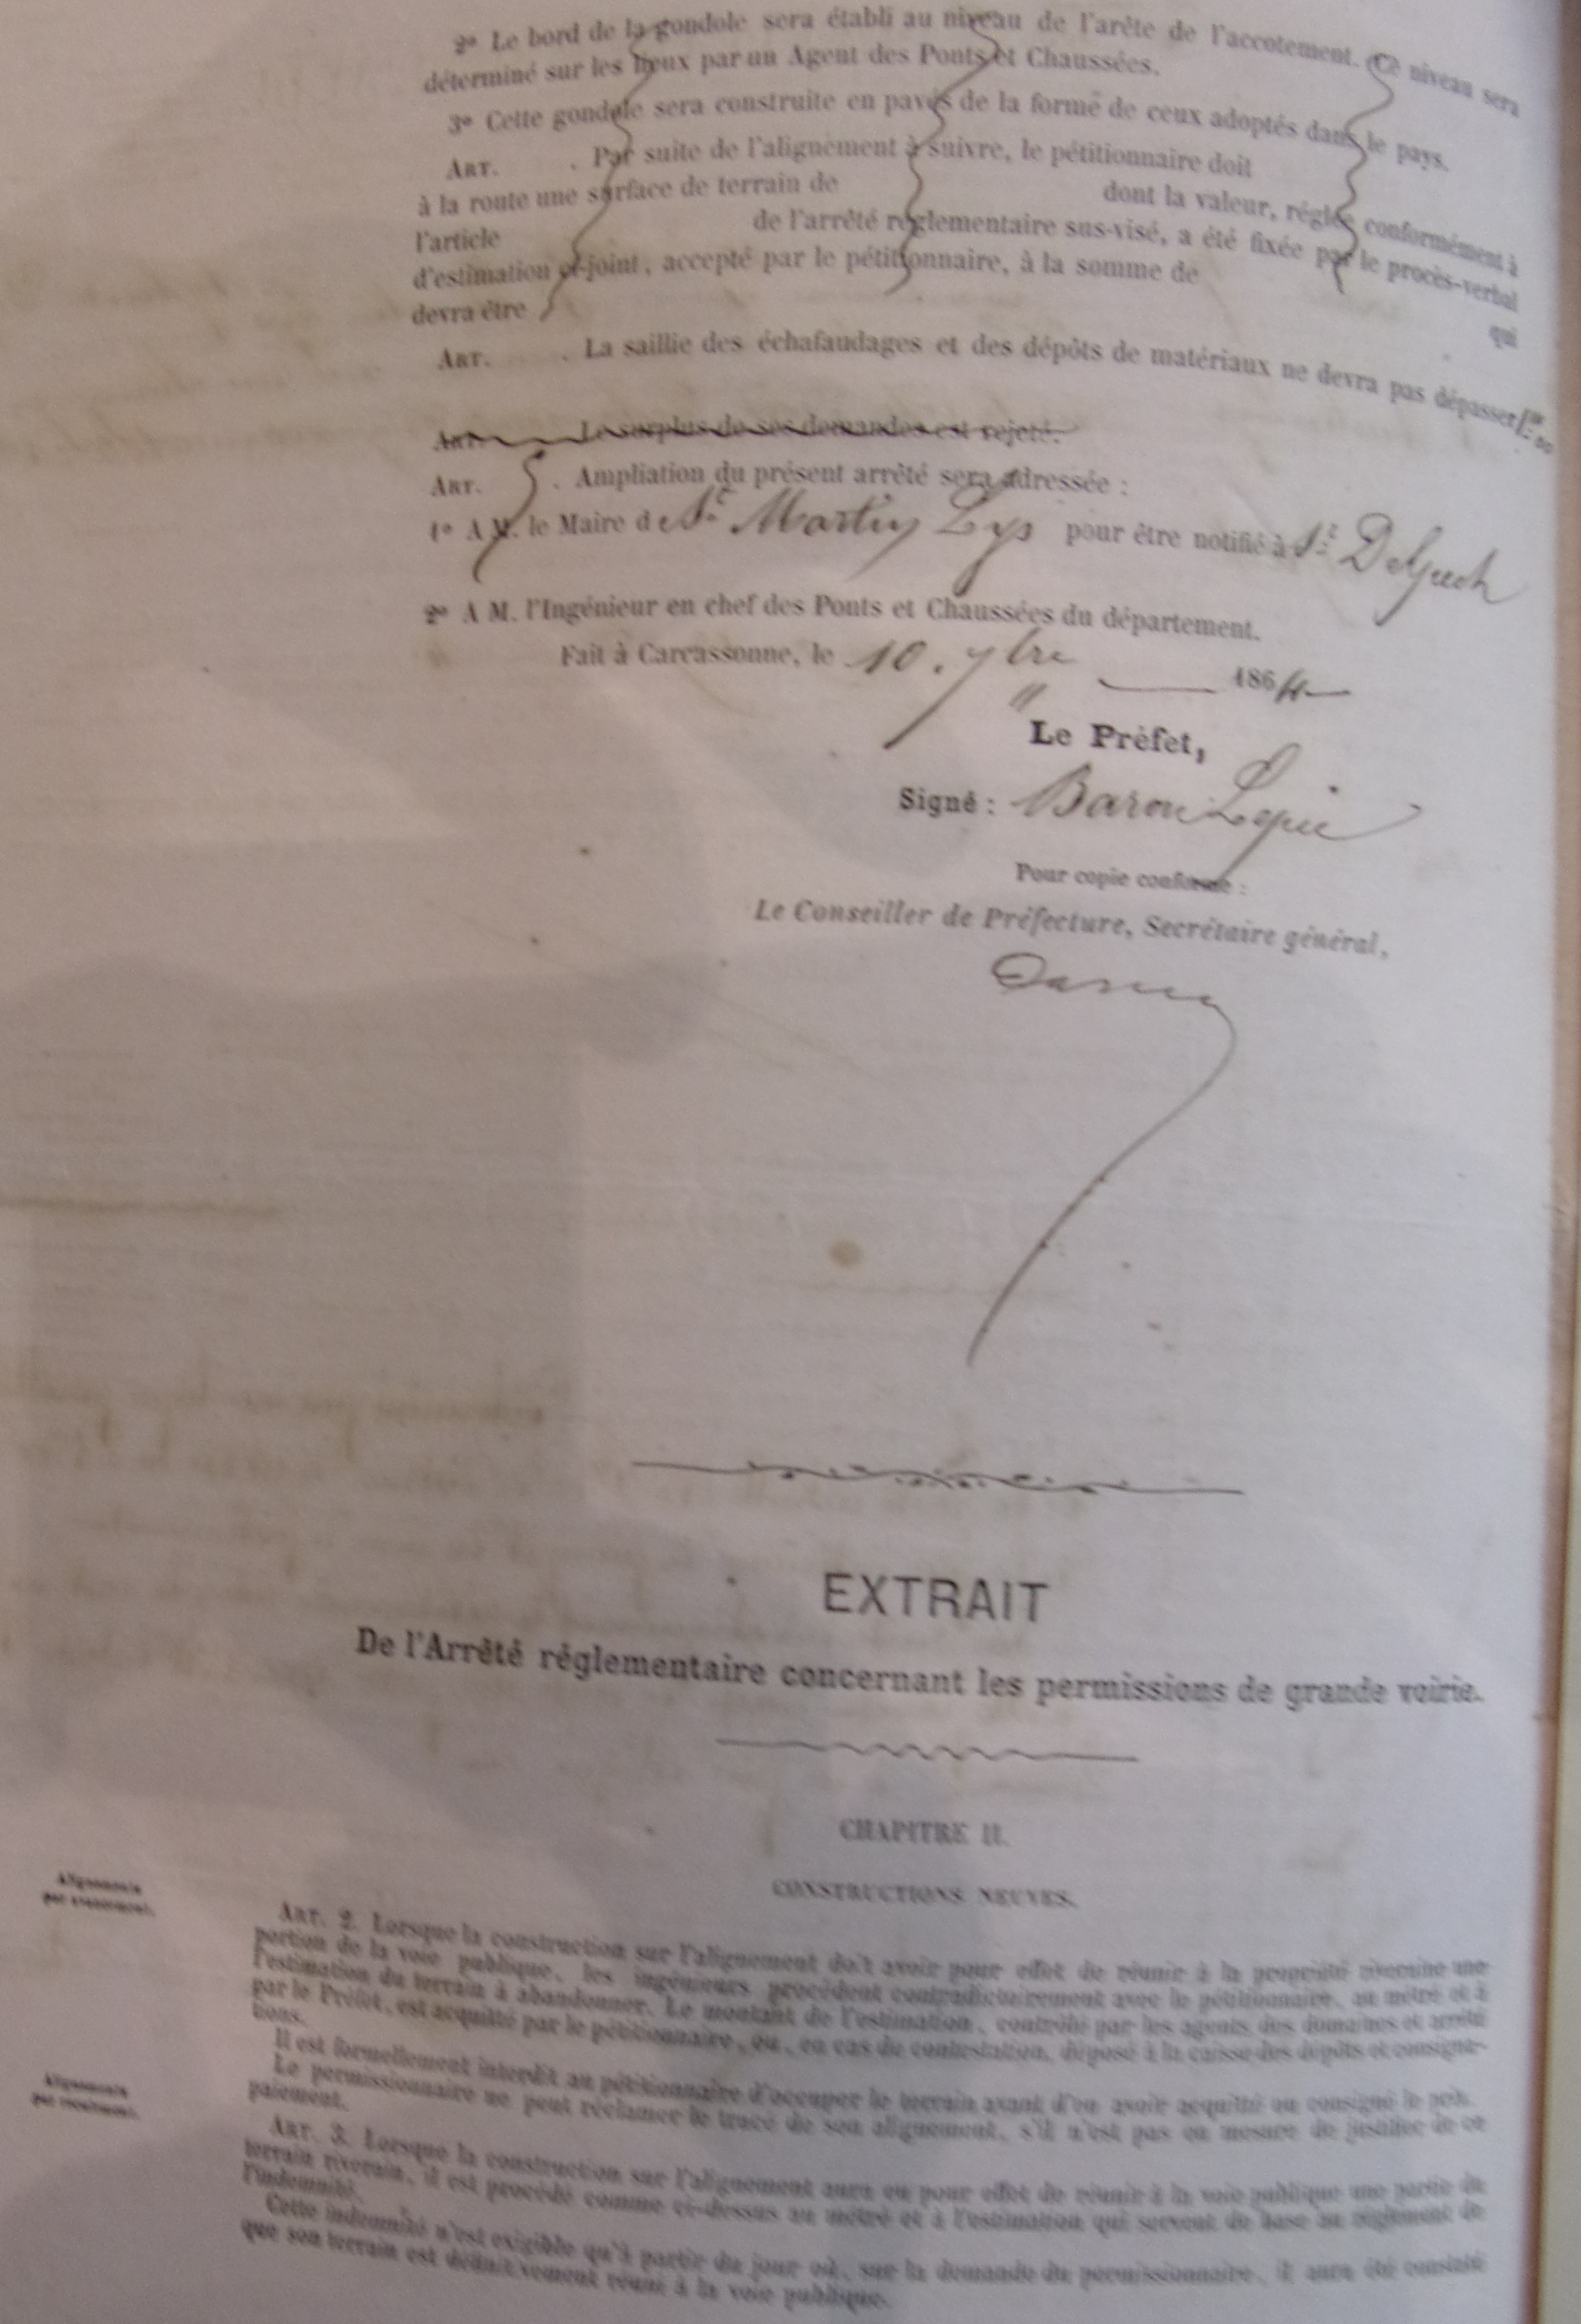 2º Le bord de la gondole sera établi au niveau de l'arête de l'accotement. Ce niveau sera
déterminé sur les lieux par un Agent des Ponts et Chaussées.
3º Cette gondole sera construite en pavés de la forme de ceux adoptés dans le pays.
ART. . Par suite de l'alignement à suivre, le pétitionnaire doit
à la route une surface de terrain de dont la valeur, réglée conformément à
l'article de l'arrêté réglementaire sus-visé, a été fixée par le procès-verbal
d'estimation ci-joint, accepté par le pétitionnaire, à la somme de qui
devra être
ART. . La saillie des échafaudages et des dépôts de matériaux ne devra pas dépasser
ART. Le surplus de ses demandes est rejeté.
ART. 5. Ampliation du présent arrêté sera adressée :
1º A M. le Maire de St Martin Lys pour être notifié à Sr Delpech
2º A M. l'Ingénieur en chef des Ponts et Chaussées du département.
Fait à Carcassonne, le 10. 7bre 1864
Le Préfet,
Signé : Baron
Pour copie conforme :
Le Conseiller de Préfecture, Secrétaire général,
EXTRAIT
De l'Arrêté réglementaire concernant les permissions de grande voirie.
CHAPITRE II.
CONSTRUCTIONS NEUVES.
Alignements
par avancement.
ART. 2. Lorsque la construction sur l'alignement doit avoir pour effet de réunir à la propriété riveraine une
portion de la voie publique, les ingénieurs procèdent contradictoirement avec le pétitionnaire, au métré et à
l'estimation du terrain à abandonner. Le montant de l'estimation, contrôlé par les agents des domaines et arrêté
par le Préfet, est acquitté par le pétitionnaire, ou, en cas de contestation, déposé à la caisse des dépôts et consigna-
tions.
Il est formellement interdit au pétitionnaire d'occuper le terrain avant d'en avoir acquitté ou consigné le prix.
Le permissionnaire ne peut réclamer le tracé de son alignement, s'il n'est pas en mesure de justifier de ce
paiement.
Alignements
par reculement.
ART. 3. Lorsque la construction sur l'alignement aura eu pour effet de réunir à la voie publique une partie du
terrain riverain, il est procédé comme ci-dessus au métré et à l'estimation qui servent de base au règlement de
l'indemnité.
Cette indemnité n'est exigible qu'à partir du jour où, sur la demande du permissionnaire, il aura été constaté
que son terrain est définitivement réuni à la voie publique.